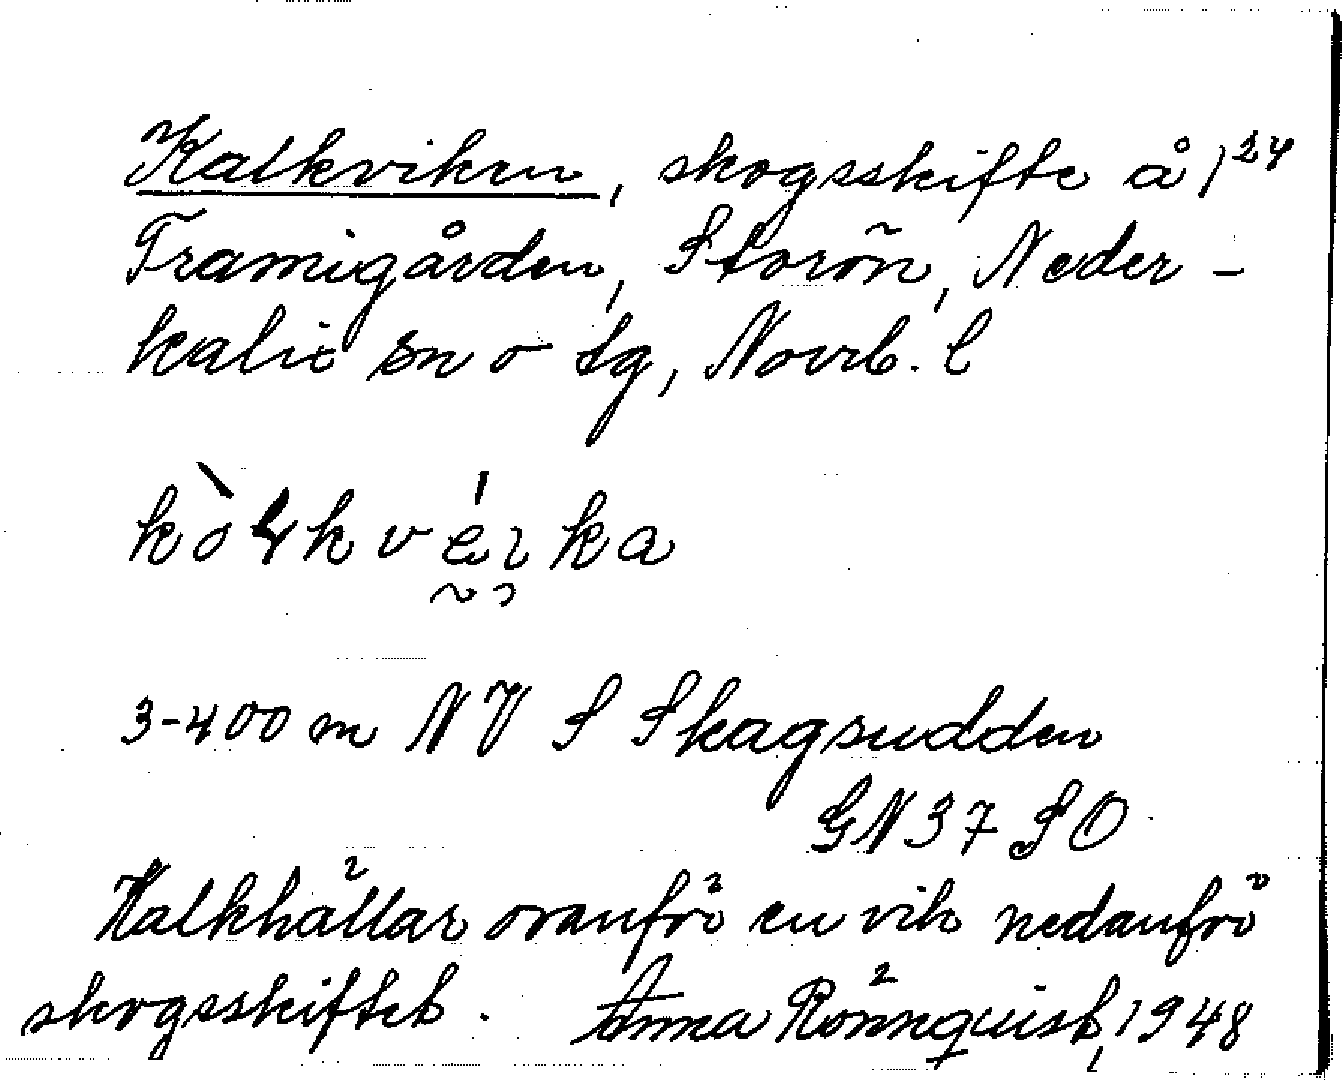 Kalkviken, skogsskifte å 1²⁴
Framigården, Storön, Neder-
kalix sn o tg, Norrb. l
3-400 m NV S Skagsudden
GN37 SO
Kalkhällar ovanför en vik nedanför
skogsskiftet. Anna Rönnquist, 1948